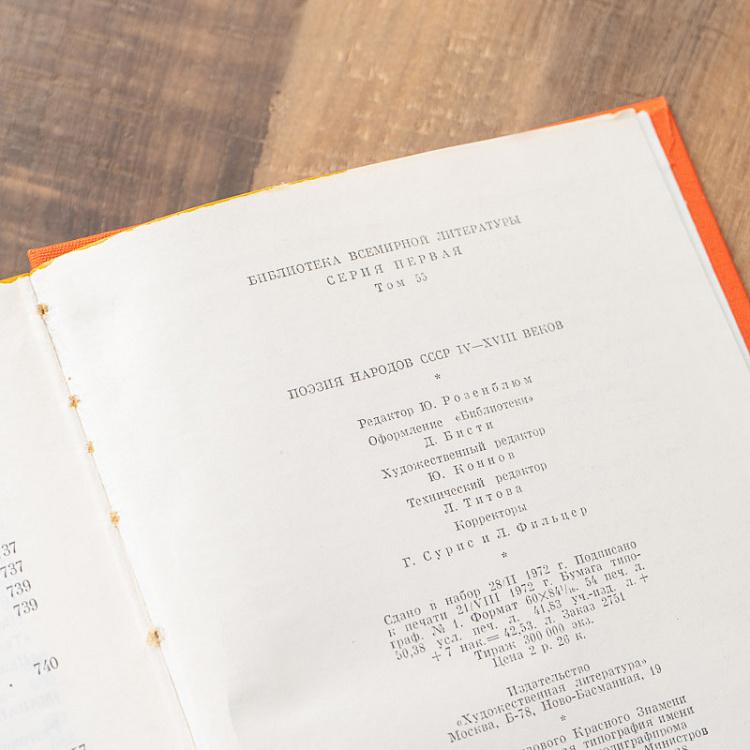 БИБЛИОТЕКА ВСЕМИРНОЙ ЛИТЕРАТУРЫ
СЕРИЯ ПЕРВАЯ
Том 55
ПОЭЗИЯ НАРОДОВ СССР IV—XVIII ВЕКОВ
*
Редактор Ю. Розенблюм
Оформление «Библиотеки»
Д. Бисти
Художественный редактор
Ю. Коннов
Технический редактор
Л. Титова
Корректоры
Г. Сурис и Л. Фильцер
*
Сдано в набор 28/II 1972 г. Подписано
к печати 21/VIII 1972 г. Бумага типо-
граф. № 1. Формат 60×84¹/₁₆. 54 печ. л.
50,38 усл. печ. л. 41,83 уч.-изд. л. +
+ 7 нак. = 42,53. л. Заказ 2751
Тираж 300 000 экз.
Цена 2 р. 26 к.
Издательство
«Художественная литература»
Москва, Б-78, Ново-Басманная, 19
*
Красного Знамени
типография имени
37
737
739
739
. 740